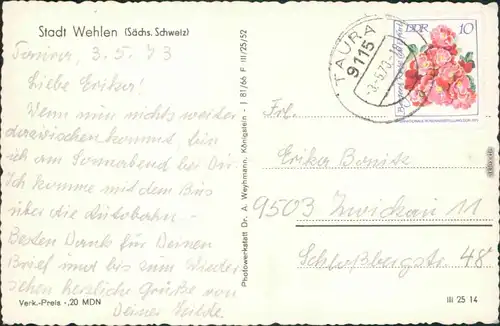 Stadt Wehlen (Sächs. Schweiz)
Taura, 3.5.73
Liebe Erika!
Wenn nun nichts weiter
dazwischen kommt, bin
ich am Sonnabend bei Dir
Ich komme mit dem Bus
über die Autobahn.
Besten Dank für Deinen
Brief und bis zum Wieder
sehen herzliche Grüße von
Deiner
Verk.-Preis -,20 MDN
Photowerkstatt Dr. A. Weyhmann, Königstein - J 81/66 F III/25/52
TAURA
9115
-3.5.73-
DDR 10
Frl.
Erika
9503 Zwickau 11
Schloßberg str. 48
III 25 14